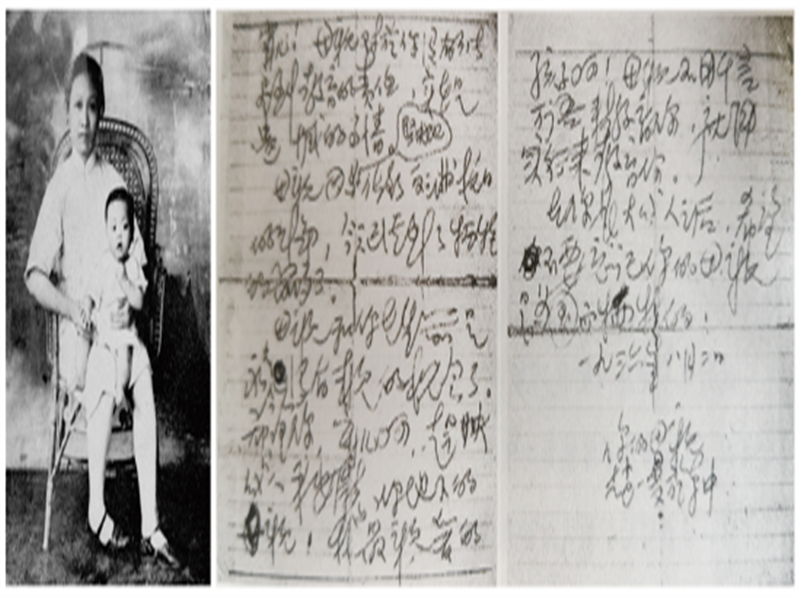 宁儿!母亲对于你没有能尽
到教育的责任,实在
是遗憾的事情。
母亲因为坚决地做了反满抗日
的斗争,今天已经到了牺牲
的前夕了。
母亲和你在生前是
永久没有再见的机会了。
希望你,宁儿啊!赶快
成人,来安慰你地下的
母亲!我最亲爱的
孩子啊!母亲不用千言
万语来教育你,就用
实行来教育你。
在你长大成人之后,希望
不要忘记你的母亲
是为国而牺牲的!
一九三六年八月二日
你的母亲
赵一曼于车中